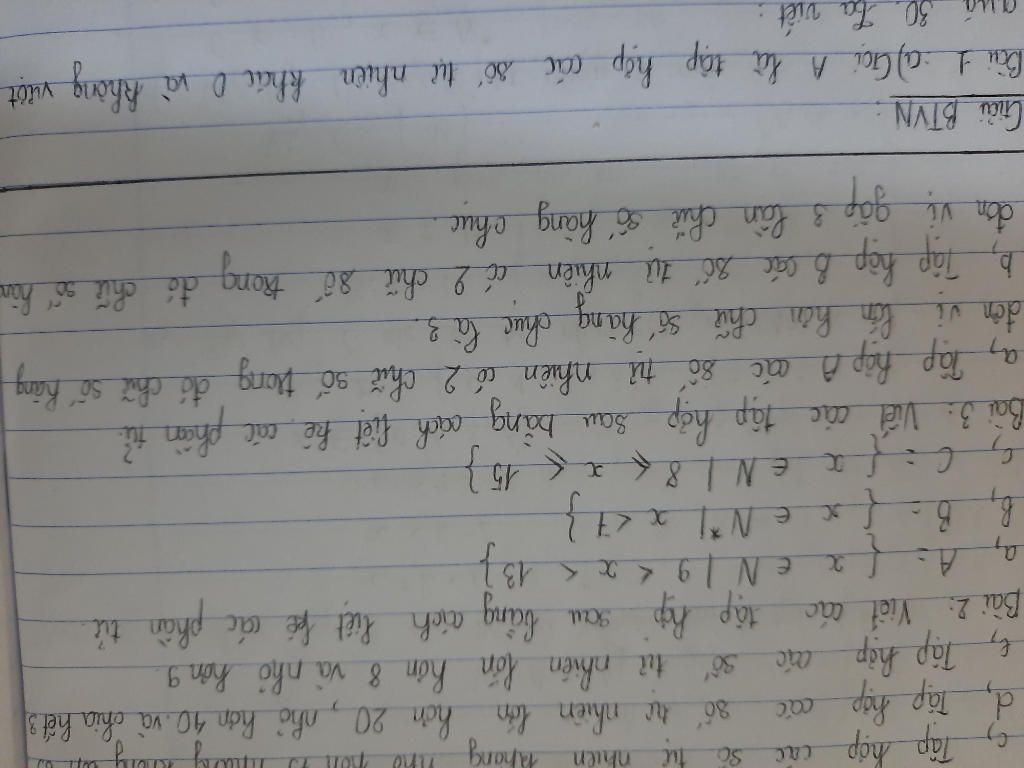 c, Tập hợp các số tự nhiên không nhỏ hơn 15 nhưng không
d, Tập hợp các số tự nhiên lớn hơn 20, nhỏ hơn 40 và chia hết 3
e, Tập hợp các số tự nhiên lớn hơn 8 và nhỏ hơn 9.
Bài 2: Viết các tập hợp sau bằng cách liệt kê các phần tử.
a, A = { x ∈ N | 9 < x < 13}
b, B = { x ∈ N* | x < 7 }
c, C = { x ∈ N | 8 ⩽ x ⩽ 15 }
Bài 3: Viết các tập hợp sau bằng cách liệt kê các phần tử?
a, Tập hợp A các số tự nhiên có 2 chữ số trong đó chữ số hàng
đơn vị lớn hơn chữ số hàng chục là 3.
b, Tập hợp B các số tự nhiên có 2 chữ số trong đó chữ số hàn
đơn vị gấp 3 lần chữ số hàng chục.
Giải BTVN:
Bài 1: a) Gọi A là tập hợp các số tự nhiên khác 0 và không vượt
quá 30. Ta viết: